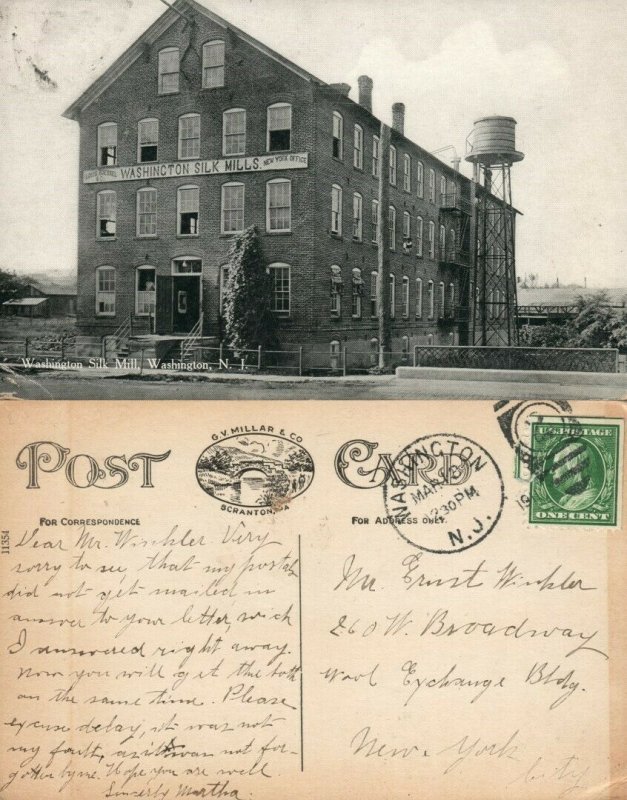 LOUIS ROESSEL WASHINGTON SILK MILLS. NEW YORK OFFICE
Washington Silk Mill, Washington, N. J.
POST CARD
G.V. MILLAR & CO
SCRANTON, PA
FOR CORRESPONDENCE
FOR ADDRESS ONLY.
11354
WASHINGTON
MAR 8
2:30 PM
N.J.
19
U.S. POSTAGE
ONE CENT
Dear Mr. Winkler. Very
sorry to see that my postals
did not get mailed in
answer to your letter, wich
I answered right away.
Now you will get the both
on the same time. Please
excuse delay, it was not
my fault, as it was not for-
gotten by me. Hope you are well
Sincerly Martha.
Mr. Ernst Winkler
260 W. Broadway
Wool Exchange Bldg.
New York
City